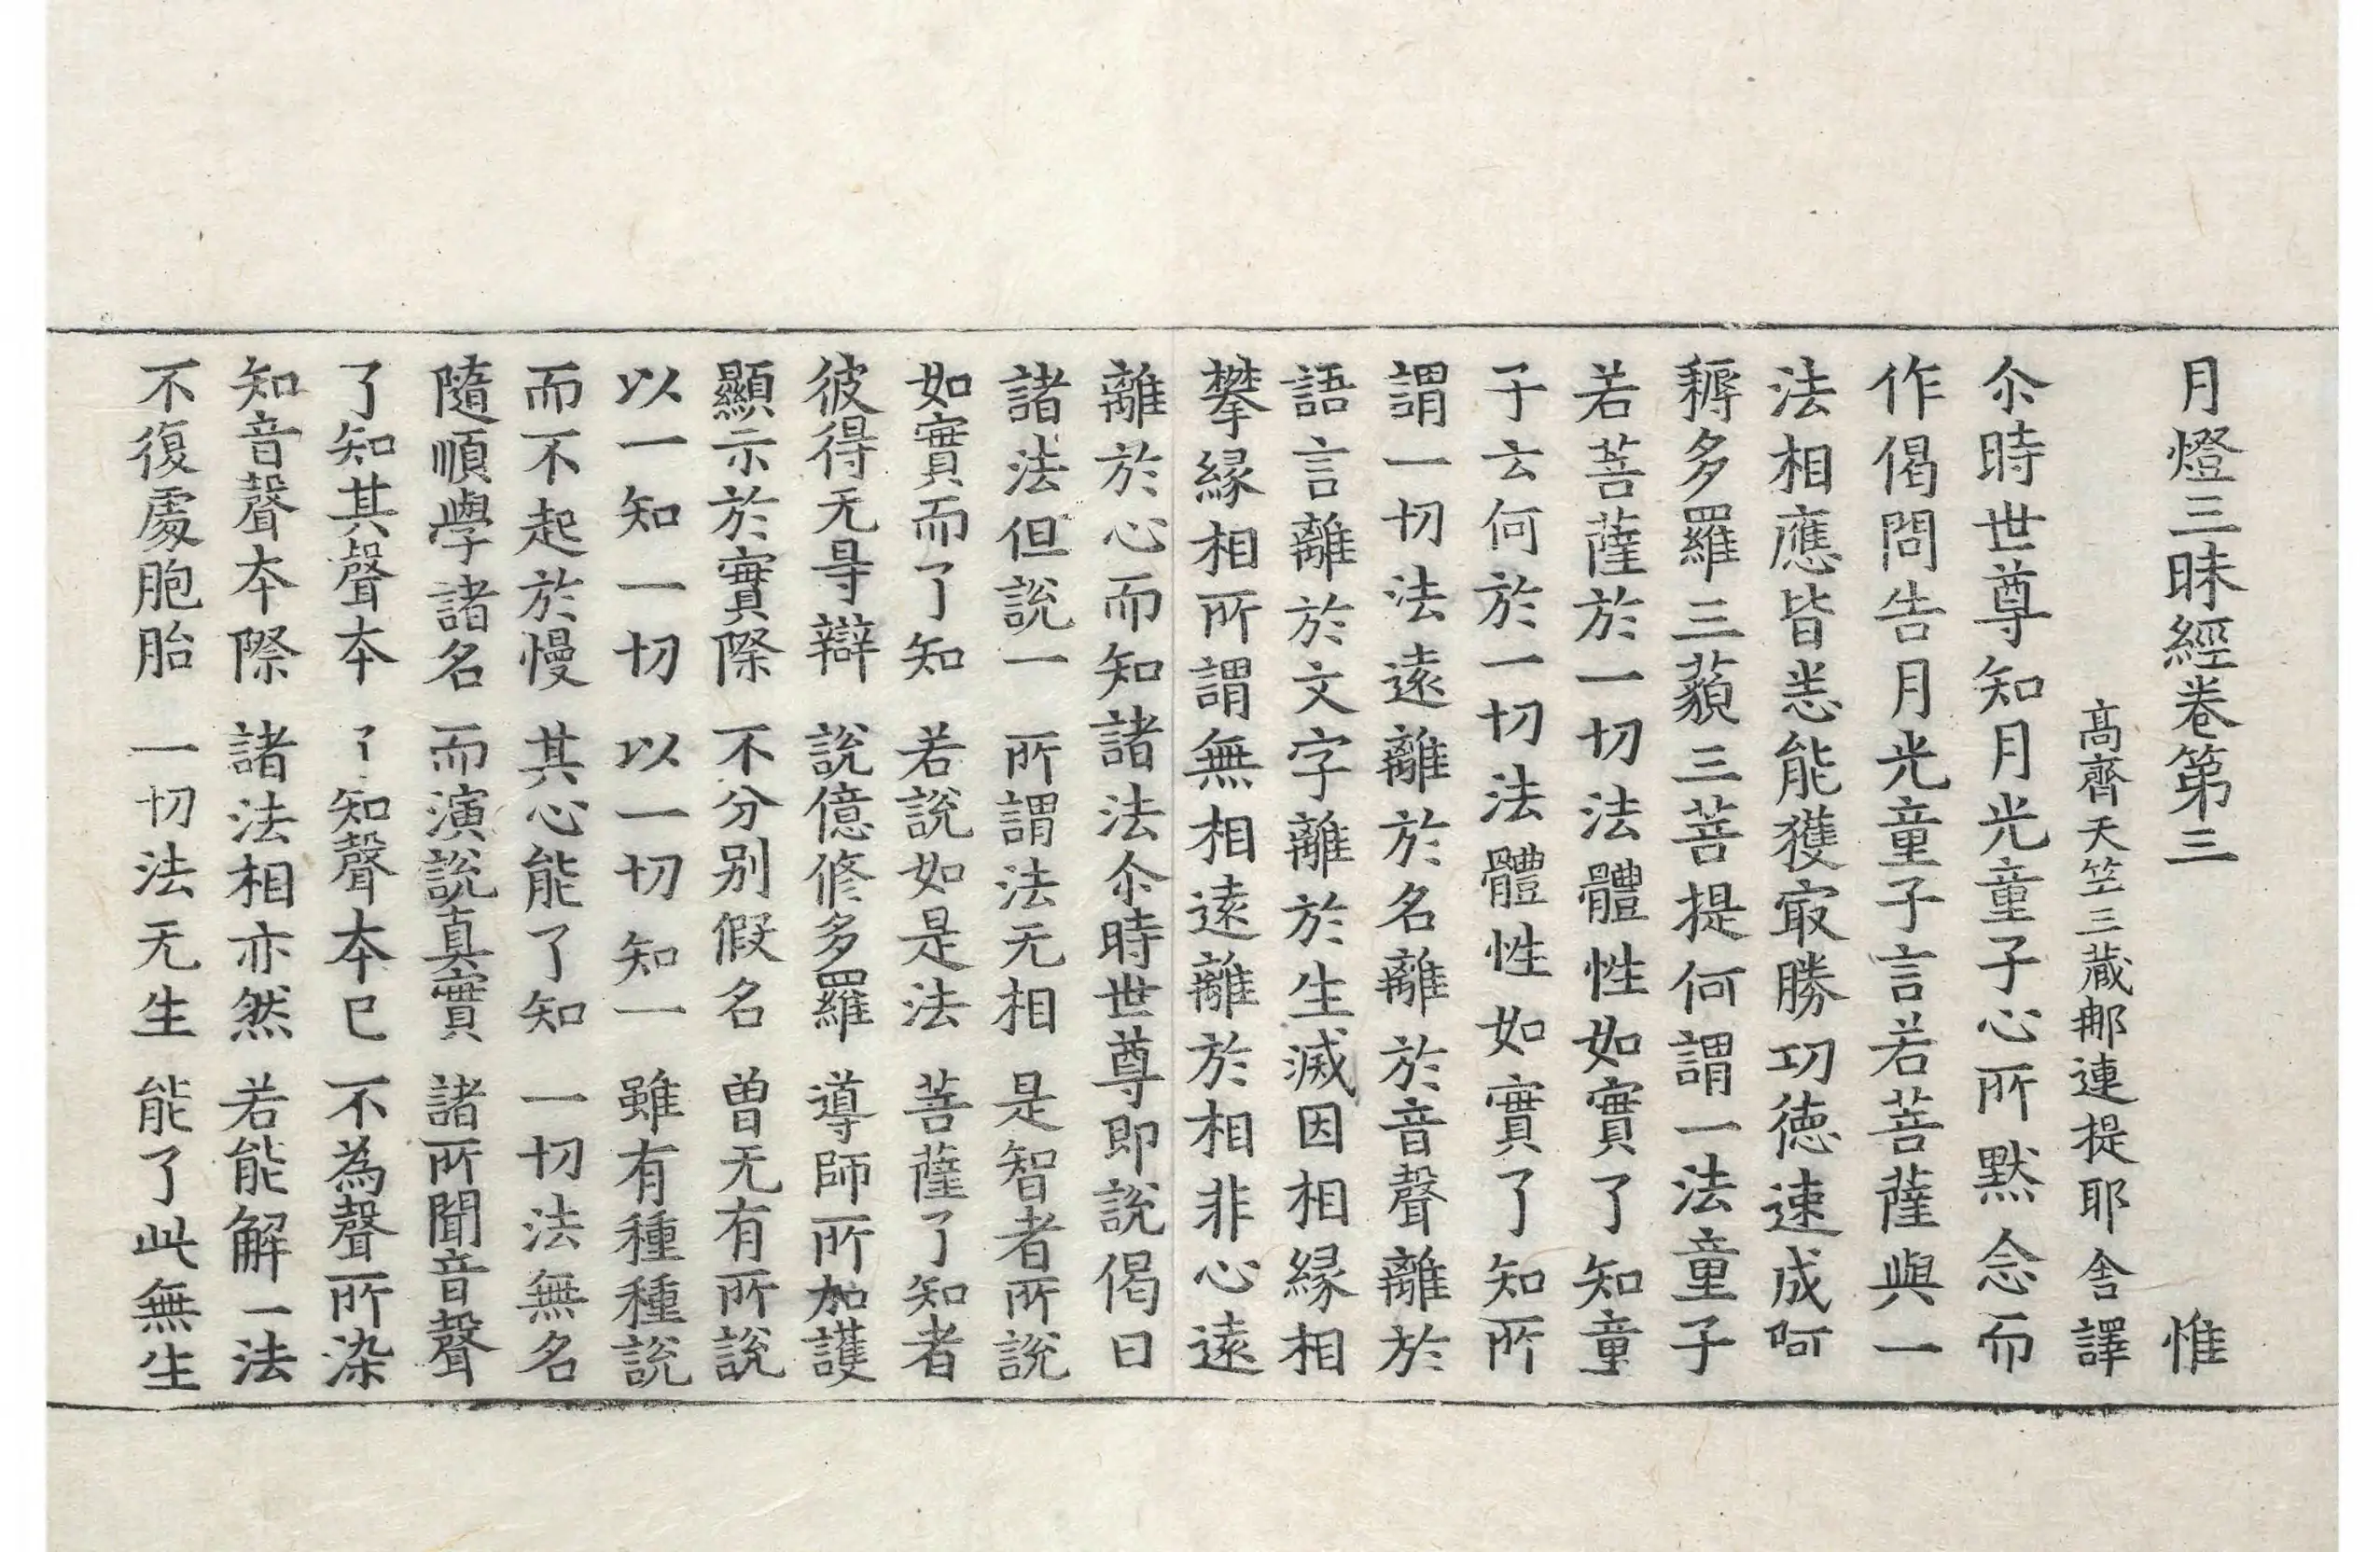 月燈三昧經卷第三　惟
高齊天竺三藏那連提耶舍譯
尒時世尊知月光童子心所默念而
作偈問告月光童子言若菩薩與一
法相應皆悉能獲㝡勝功德速成阿
耨多羅三藐三菩提何謂一法童子
若菩薩於一切法體性如實了知童
子云何於一切法體性如實了知所
謂一切法遠離於名離於音聲離於
語言離於文字離於生滅因相緣相
攀緣相所謂無相遠離於相非心遠
離於心而知諸法尒時世尊即說偈曰
諸法但說一　所謂法无相　是智者所說
如實而了知　若說如是法　菩薩了知者
彼得无㝵辯　說億修多羅　導師所加護
顯示於實際　不分別假名　曾无有所說
以一知一切　以一切知一　雖有種種說
而不起於慢　其心能了知　一切法無名
隨順學諸名　而演說真實　諸所聞音聲
了知其聲本　了知聲本已　不為聲所染
知音聲本際　諸法相亦然　若能解一法
不復處胞胎　一切法无生　能了此無生